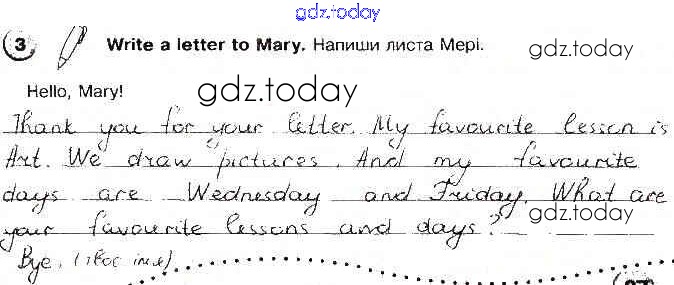 gdz.today
3 Write a letter to Mary. Напиши листа Мері.
gdz.today
Hello, Mary!
gdz.today
Thank you for your letter. My favourite lesson is
Art. We draw pictures. And my favourite
days are Wednesday and Friday. What are
gdz.today
your favourite lessons and days?
Bye. (твоє ім'я)